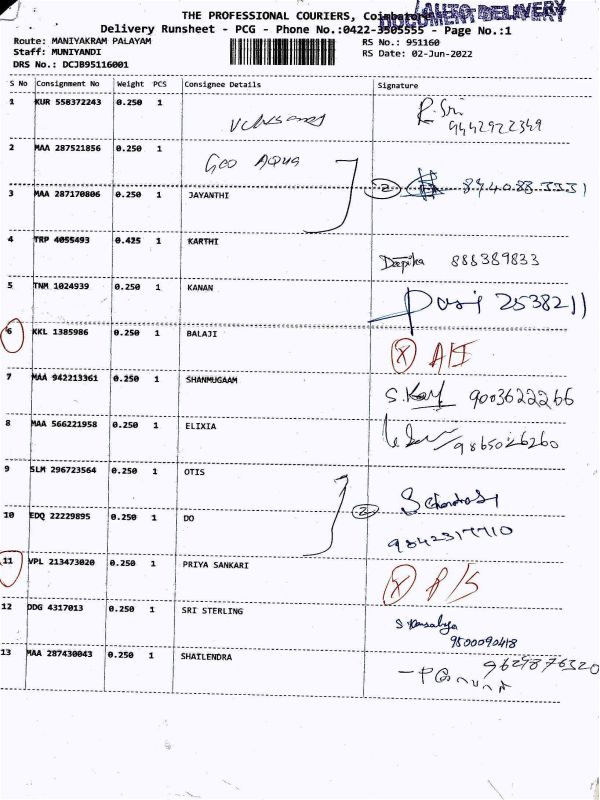 THE PROFESSIONAL COURIERS, Coimbatore
AUTO DELIVERY
DOCUMENT DELIVERY
Delivery Runsheet - PCG - Phone No.:0422-3505555 - Page No.:1
Route: MANIYAKRAM PALAYAM RS No.: 951160
Staff: MUNIYANDI RS Date: 02-Jun-2022
DRS No.: DCJB95116001
S No Consignment No Weight PCS Consignee Details Signature
1 KUR 558372243 0.250 1 R. Sri 9442922349
2 MAA 287521856 0.250 1 Goo AQUA
3 MAA 287170806 0.250 1 JAYANTHI 2
4 TRP 4055493 0.425 1 KARTHI Deepika 886389833
5 TNM 1024939 0.250 1 KANAN 2538211
6 KKL 1385986 0.250 1 BALAJI X
7 MAA 942213361 0.250 1 SHANMUGAAM 9003622266
8 MAA 566221958 0.250 1 ELIXIA 9865026260
9 SLM 296723564 0.250 1 OTIS
10 EDQ 22229895 0.250 1 DO 2 9842317710
11 VPL 213473020 0.250 1 PRIYA SANKARI X
12 DDG 4317013 0.250 1 SRI STERLING 9500090418
13 MAA 287430043 0.250 1 SHAILENDRA 9629876320